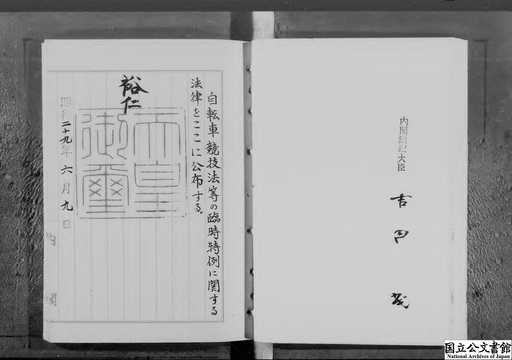 自転車競技法等の臨時特例に関する
法律をここに公布する。
裕仁
天皇
御璽
昭和二十九年六月九日
内閣
内閣総理大臣
吉田茂
国立公文書館
National Archives of Japan